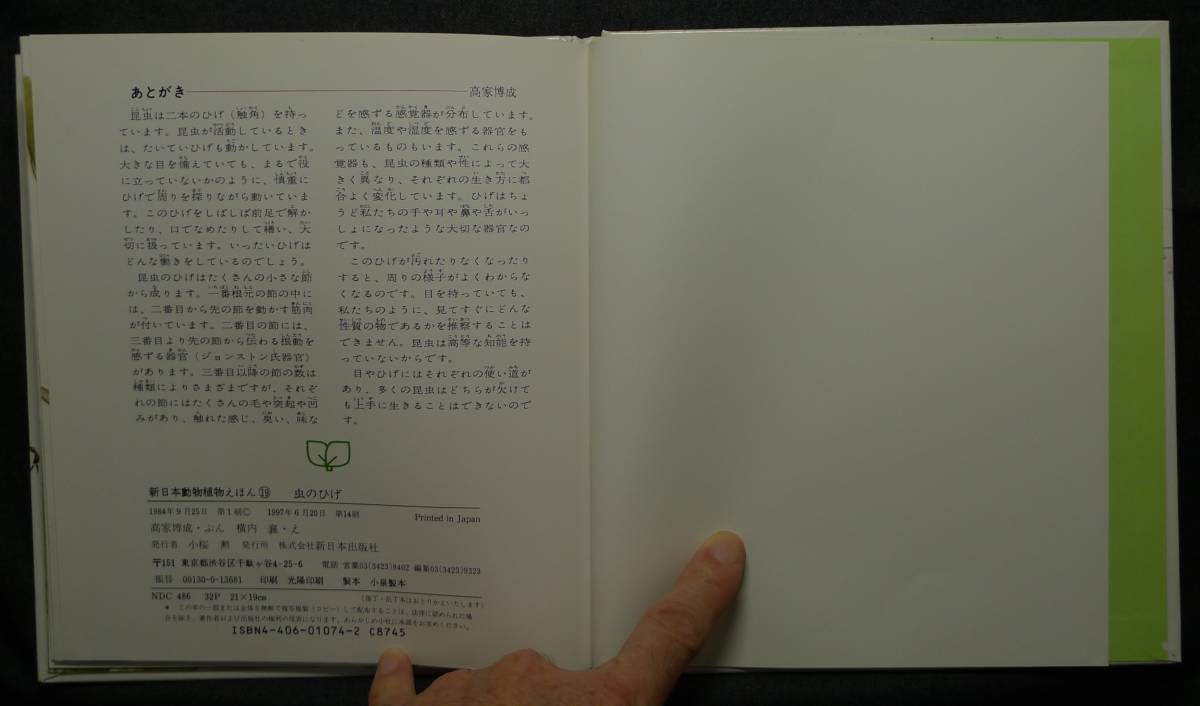 あとがき 高家博成
昆虫は二本のひげ(触角)を持っ
ています。昆虫が活動しているとき
は、たいていひげも動かしています。
大きな目を備えていても、まるで役
に立っていないかのように、慎重に
ひげで周りを探りながら動いていま
す。このひげをしばしば前足で解か
したり、口でなめたりして繕い、大
切に扱っています。いったいひげは
どんな働きをしているのでしょう。
昆虫のひげはたくさんの小さな節
から成ります。一番根元の節の中に
は、二番目から先の節を動かす筋肉
が付いています。二番目の節には、
三番目より先の節から伝わる振動を
感ずる器官(ジョンストン氏器官)
があります。三番目以降の節の数は
種類によりさまざまですが、それぞ
れの節にはたくさんの毛や突起や凹
みがあり、触れた感じ、臭い、味な
どを感ずる感覚器が分布しています。
また、温度や湿度を感ずる器官をも
っているものもいます。これらの感
覚器も、昆虫の種類や性によって大
きく異なり、それぞれの生き方に都
合よく変化しています。ひげはちょ
うど私たちの手や耳や鼻や舌がいっ
しょになったような大切な器官なの
です。
このひげが汚れたりなくなったり
すると、周りの様子がよくわからな
くなるのです。目を持っていても、
私たちのように、見てすぐにどんな
性質の物であるかを推察することは
できません。昆虫は高等な知能を持
っていないからです。
目やひげにはそれぞれの使い道が
あり、多くの昆虫はどちらが欠けて
も上手に生きることはできないので
す。
新日本動物植物えほん⑲ 虫のひげ
1984年9月25日 第1刷© 1997年6月20日 第14刷 Printed in Japan
高家博成・ぶん 横内 襄・え
発行者 小桜 勲 発行所 株式会社新日本出版社
〒151 東京都渋谷区千駄ヶ谷4-25-6 電話 営業03(3423)8402 編集03(3423)9323
振替 00130-0-13681 印刷 光陽印刷 製本 小泉製本
NDC 486 32P 21×19cm (落丁・乱丁本はおとりかえいたします)
* この本の一部または全体を無断で複写複製(コピー)して配布することは、法律で認められた場
合を除き、著作者および出版社の権利の侵害になります。あらかじめ小社に承諾をお求めください。
ISBN4-406-01074-2 C8745